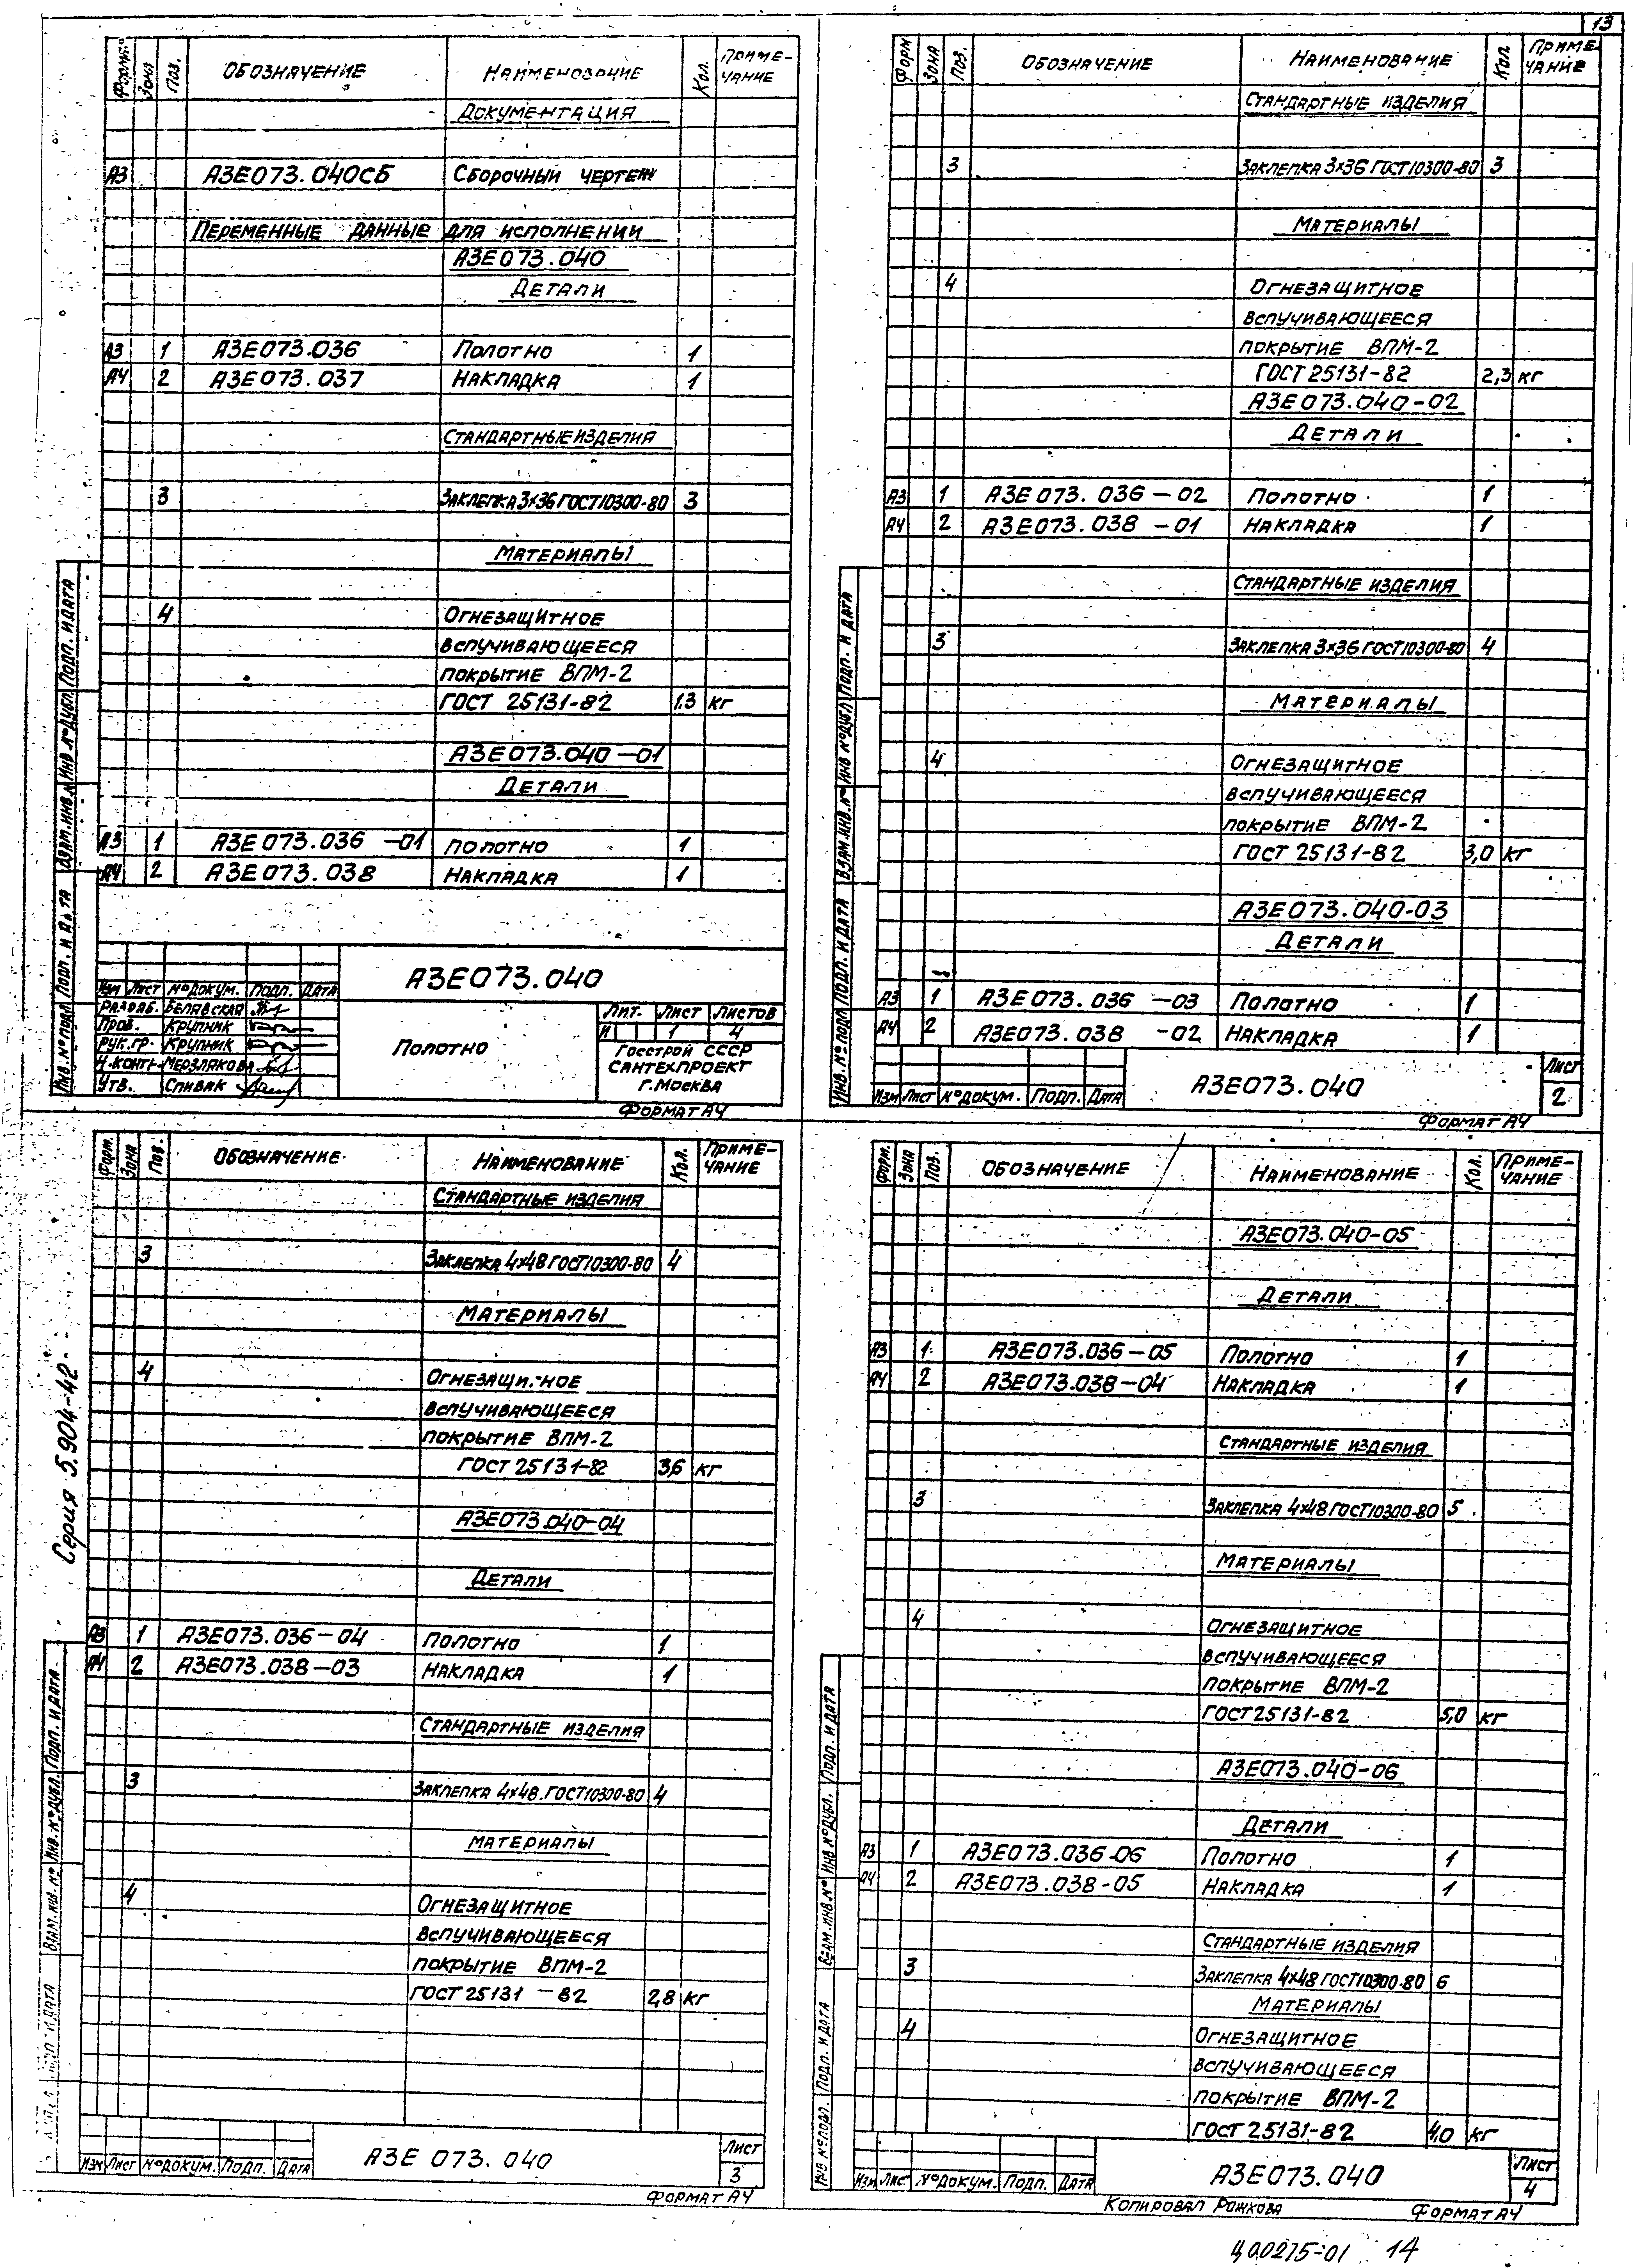 13
Форм. Зона Поз. Обозначение Наименование Кол. Приме-
чание
Документация
А3 А3Е073.040СБ Сборочный чертеж
Переменные данные для исполнений
А3Е073.040
Детали
А3 1 А3Е073.036 Полотно 1
А4 2 А3Е073.037 Накладка 1
Стандартные изделия
3 Заклепка 3×36 ГОСТ10300-80 3
Материалы
4 Огнезащитное
вспучивающееся
покрытие ВПМ-2
ГОСТ 25131-82 1.3 кг
А3Е073.040-01
Детали
А3 1 А3Е073.036-01 Полотно 1
А4 2 А3Е073.038 Накладка 1
Инв.№подл Подп. и дата Взам.инв.№ Инв №дубл. Подп. и дата
Изм Лист №докум. Подп. Дата
Разраб. Белявская
Пров. Крупник
Рук.гр. Крупник
Н.контр. Мерзлякова
Утв. Спивак
А3Е073.040
Полотно
Лит. Лист Листов
И 1 4
Госстрой СССР
Сантехпроект
г.Москва
Формат А4
Форм Зона Поз. Обозначение Наименование Кол. Приме-
чание
Стандартные изделия
3 Заклепка 3×36 ГОСТ10300-80 3
Материалы
4 Огнезащитное
вспучивающееся
покрытие ВПМ-2
ГОСТ 25131-82 2,3 кг
А3Е073.040-02
Детали
А3 1 А3Е073.036-02 Полотно 1
А4 2 А3Е073.038-01 Накладка 1
Стандартные изделия
3 Заклепка 3×36 ГОСТ10300-80 4
Материалы
4 Огнезащитное
вспучивающееся
покрытие ВПМ-2
ГОСТ 25131-82 3,0 кг
А3Е073.040-03
Детали
А3 1 А3Е073.036-03 Полотно 1
А4 2 А3Е073.038-02 Накладка 1
Инв.№подл Подп. и дата Взам.инв.№ Инв №дубл Подп. и дата
Изм Лист №докум. Подп. Дата
А3Е073.040
Лист
2
Формат А4
Серия 5.904-42
Форм. Зона Поз. Обозначение Наименование Кол. Приме-
чание
Стандартные изделия
3 Заклепка 4×48 ГОСТ10300-80 4
Материалы
4 Огнезащитное
вспучивающееся
покрытие ВПМ-2
ГОСТ 25131-82 3,6 кг
А3Е073.040-04
Детали
А3 1 А3Е073.036-04 Полотно 1
А4 2 А3Е073.038-03 Накладка 1
Стандартные изделия
3 Заклепка 4×48 ГОСТ10300-80 4
Материалы
4 Огнезащитное
вспучивающееся
покрытие ВПМ-2
ГОСТ 25131-82 2,8 кг
Подп. и дата Взам.инв.№ Инв.№дубл. Подп. и дата
Изм Лист №докум. Подп. Дата
А3Е 073.040
Лист
3
Формат А4
Форм. Зона Поз. Обозначение Наименование Кол. Приме-
чание
А3Е073.040-05
Детали
А3 1 А3Е073.036-05 Полотно 1
А4 2 А3Е073.038-04 Накладка 1
Стандартные изделия
3 Заклепка 4×48 ГОСТ10300-80 5
Материалы
4 Огнезащитное
вспучивающееся
покрытие ВПМ-2
ГОСТ 25131-82 5,0 кг
А3Е073.040-06
Детали
А3 1 А3Е073.036-06 Полотно 1
А4 2 А3Е073.038-05 Накладка 1
Стандартные изделия
3 Заклепка 4×48 ГОСТ10300-80 6
Материалы
4 Огнезащитное
вспучивающееся
покрытие ВПМ-2
ГОСТ 25131-82 4,0 кг
Инв №подл. Подп. и дата Взам.инв.№ Инв №дубл. Подп. и дата
Изм Лис №докум. Подп. Дата
А3Е073.040
Лист
4
Копировал Рожкова Формат А4
400275-01 14